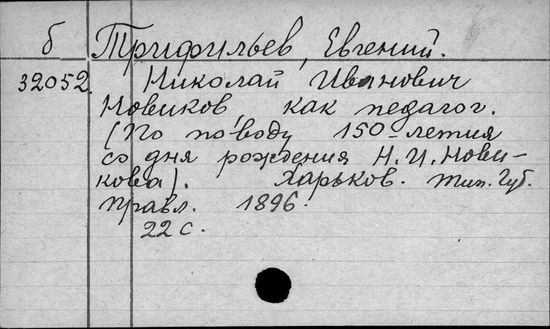 б Трифильев, Евгений.
32052. Николай Иванович
Новиков, как педагог.
(По поводу 150-летия
со дня рождения Н.И. Нови-
кова). Харьков. Тип. Губ.
Правл. 1896.
22 с.